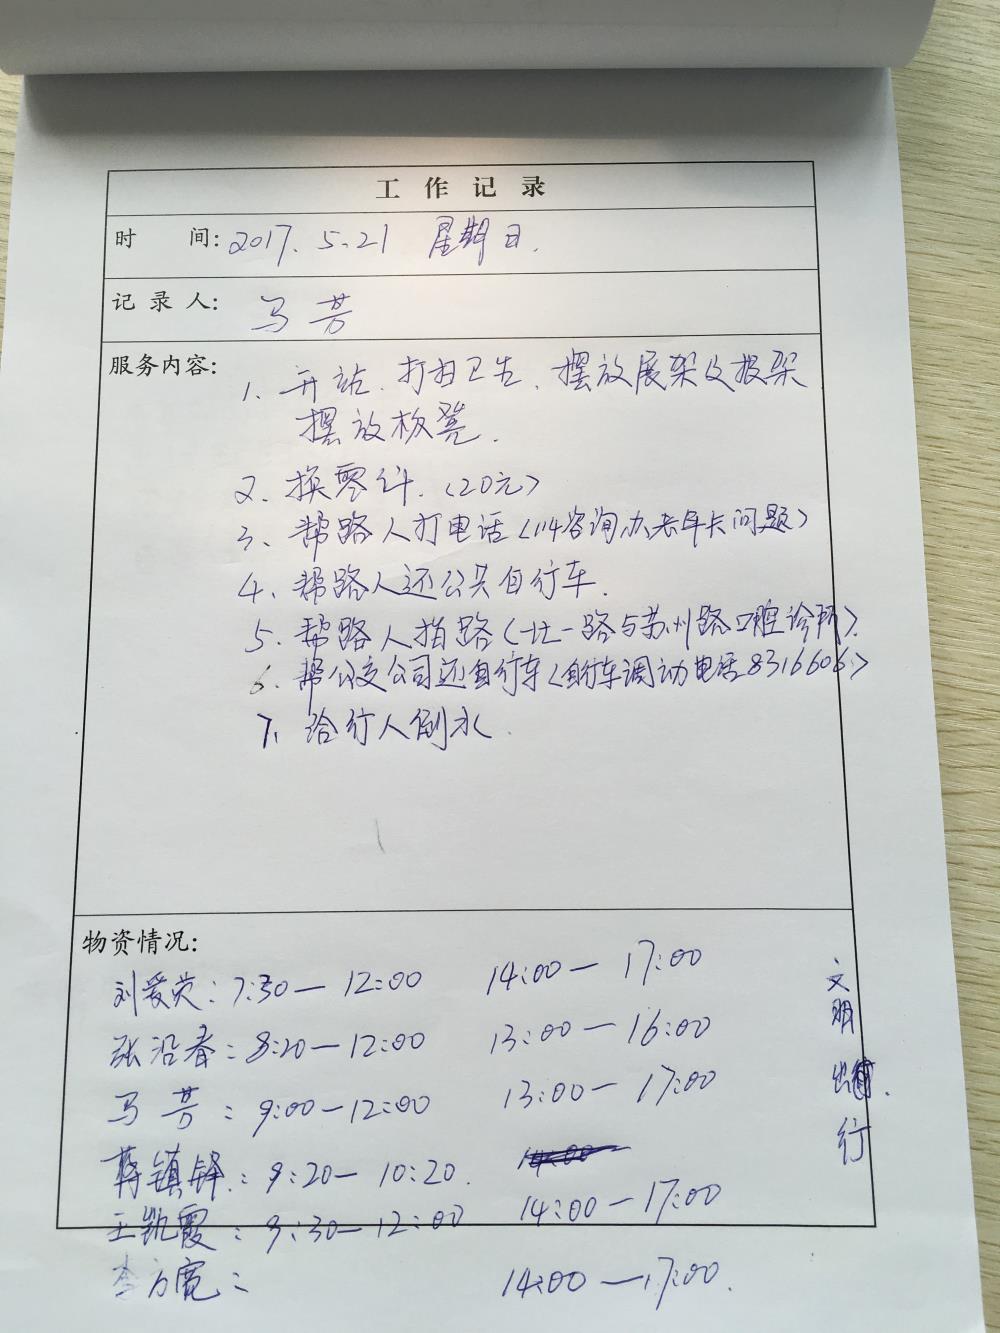 工作记录
时 间: 2017.5.21 星期日.
记录人: 马芳
服务内容:
1. 开站、打扫卫生、摆放展架及报架
摆放板凳.
2、换零钱.（20元）
3、帮路人打电话（114咨询办老年卡问题）
4、帮路人还公共自行车.
5、帮路人指路（北一路与苏州路口腔诊所）.
6、帮公交公司还自行车（自行车调动电话8316606.）
7、给行人倒水.
物资情况:
刘爱荣: 7:30—12:00 14:00—17:00
张沿春: 8:20—12:00 13:00—16:00
马芳: 9:00—12:00 13:00—17:00
蒋镇铎: 9:20—10:20.
王凯霞: 9:30—12:00 14:00—17:00
李方宽: 14:00—17:00.
文明出行